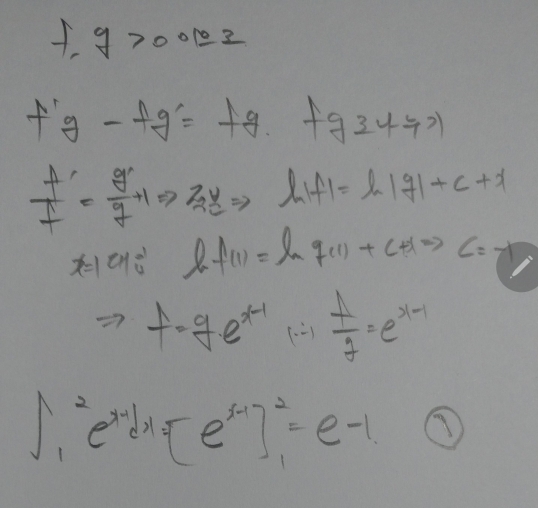 f, g > 0 이므로
f'g - fg' = fg. fg로 나누기
f'/f = g'/g + 1 ⇒ 적분 ⇒ ln|f| = ln|g| + c + x
x=1 대입 ln f(1) = ln g(1) + c+1 ⇒ c = -1
⇒ f = g·e^(x-1) (∴) f/g = e^(x-1)
∫₁² e^(x-1)dx = [e^(x-1)]₁² = e-1. ①